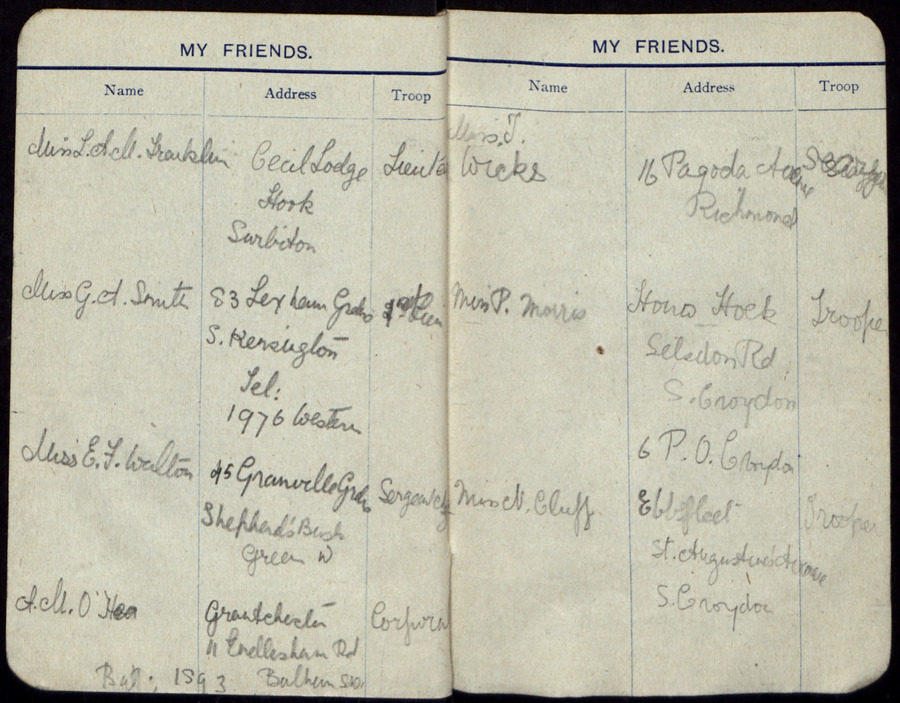 MY FRIENDS.
Name Address Troop
Miss L.A.M. Franklin Cecil Lodge
Hook
Surbiton
Miss G.A. Smith 83 Lexham Grdns
S. Kensington
Tel:
1976 Western
Miss E.F. Walton 45 Granville Grdns
Shepherd's Bush
Green W
A.M. O'Hea Grantchester Corporal
11 Endlesham Rd
Bat: 1893 Balham S.W.
MY FRIENDS.
Name Address Troop
Miss J.
Wicks 16 Pagoda Avenue
Richmond
Miss P. Morris Hoek Trooper
Selsdon Rd
S. Croydon
6 P.O. Croydon
Miss N. Cluff Ebbfleet Trooper
St. Augustine's Avenue
S. Croydon